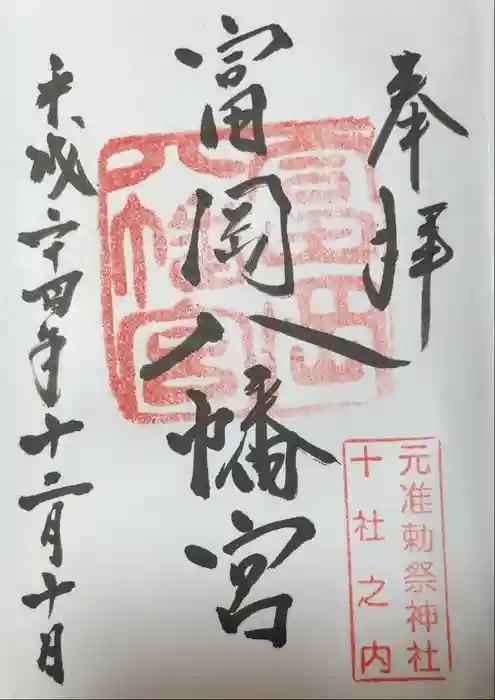 奉拝
富岡八幡宮
平成二十四年十二月十日
元准勅祭神社
十社之内